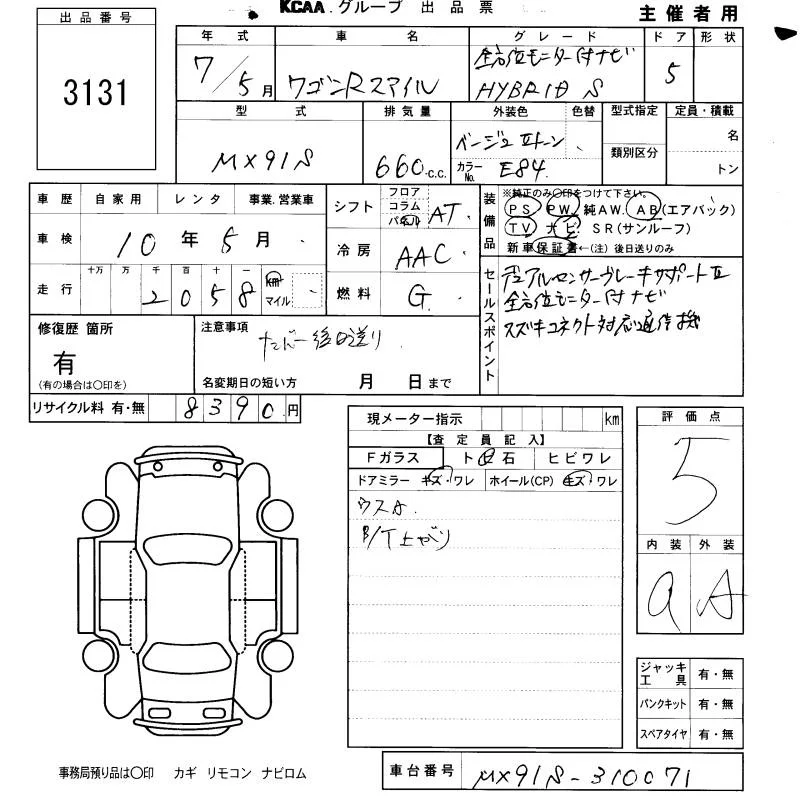 KCAA.グループ 出品票
主催者用
出品番号
3131
年式 車名 グレード ドア 形状
7/5月 ワゴンRスマイル 全方位モニター付ナビ HYBRID S 5
型式 排気量 外装色 色替 型式指定 定員・積載
MX91S 660 c.c. ベージュⅡトーン 類別区分 名
カラーNo. E84 トン
車歴 自家用 レンタ 事業.営業車
車検 10年5月
走行 十万 万 千 百 十 一
2058 km マイル
シフト フロア コラム パネル AT
冷房 AAC
燃料 G
装備品 ※純正のみ〇印をつけて下さい。
PS PW 純AW. AB(エアバック)
TV ナビ SR(サンルーフ)
新車保証書←(注)後日送りのみ
セールスポイント
デュアルセンサーブレーキサポートⅡ
全方位モニター付ナビ
スズキコネクト対応通信機
修復歴 箇所
有
(有の場合は〇印を)
注意事項
ナンバー後日送り
名変期日の短い方 月 日まで
リサイクル料 有・無 8390円
現メーター指示 km
【査定員記入】
Fガラス ト匕石 ヒビワレ
ドアミラー キズ・ワレ ホイール(CP) キズ・ワレ
ウスA
B/T上がり
評価点
5
内装 外装
a A
ジャッキ工具 有・無
パンクキット 有・無
スペアタイヤ 有・無
事務局預り品は〇印 カギ リモコン ナビロム
車台番号 MX91S-310071